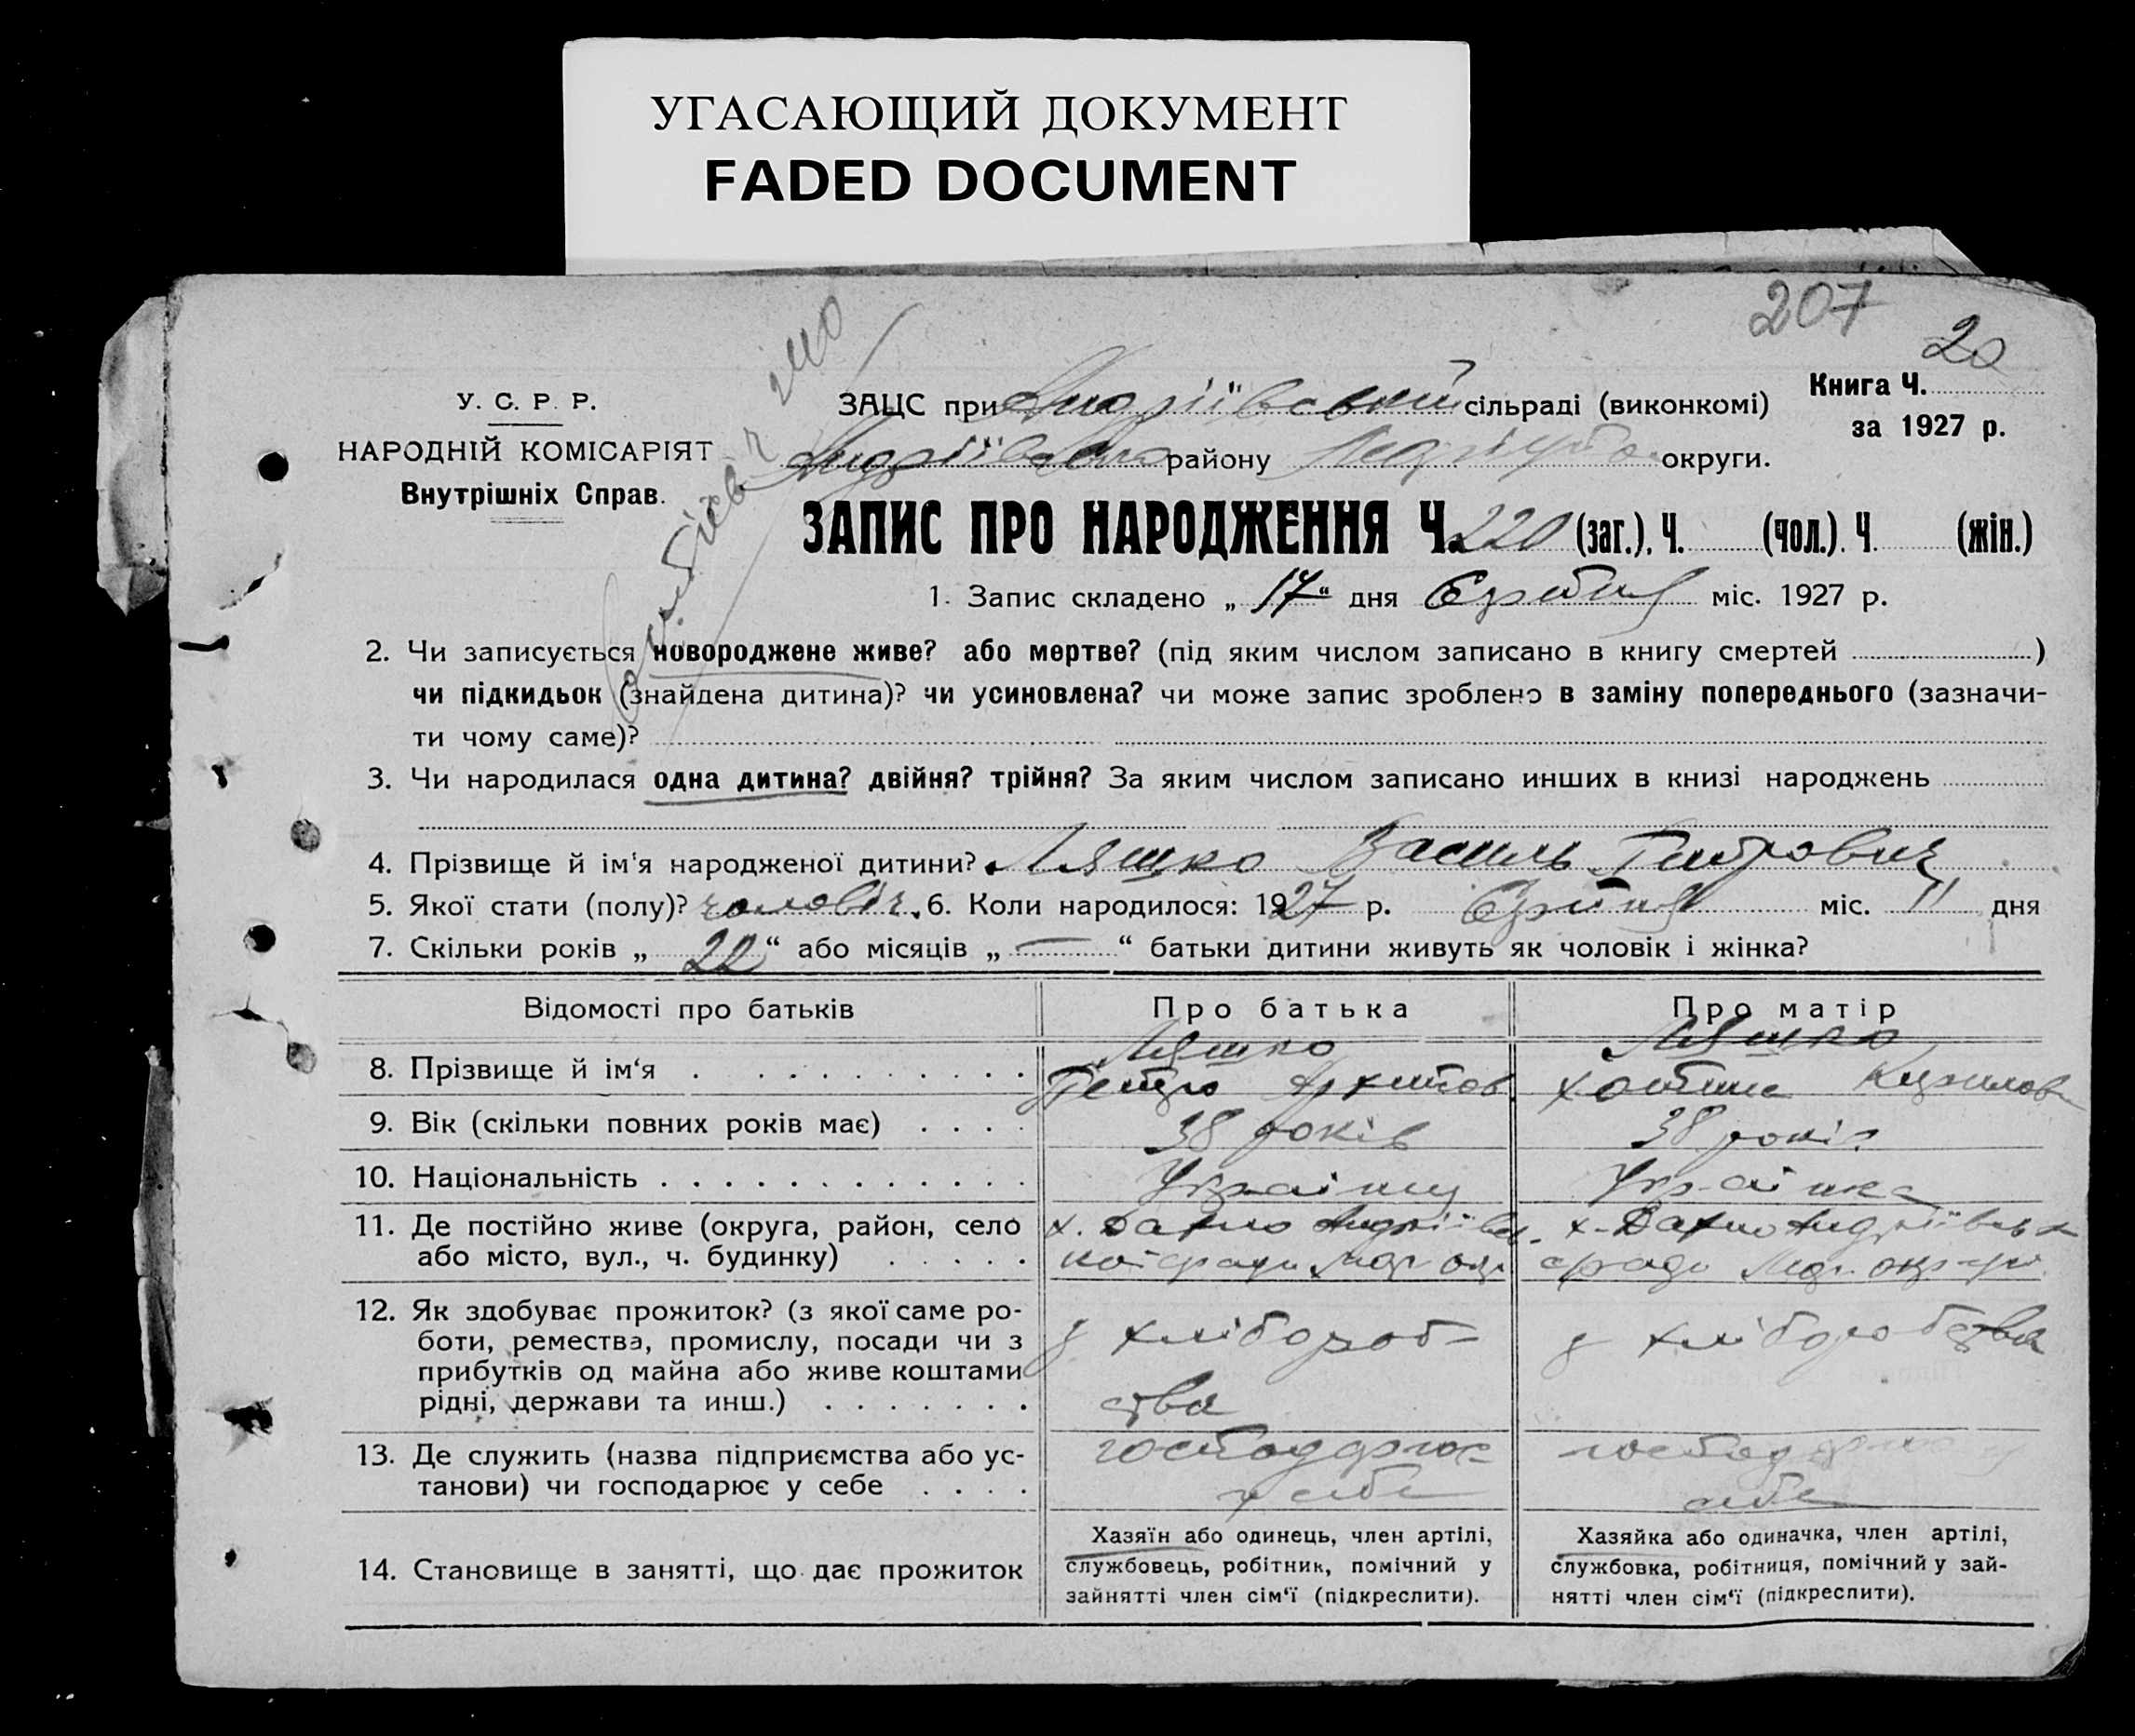 УГАСАЮЩИЙ ДОКУМЕНТ
FADED DOCUMENT
207
20
У. С. Р. Р.
НАРОДНІЙ КОМІСАРІЯТ
Внутрішніх Справ.
ЗАЦС при Андріївській сільраді (виконкомі)
Книга Ч.
за 1927 р.
Андріївського району округи.
ЗАПИС ПРО НАРОДЖЕННЯ Ч. 220 (заг.). Ч. (чол.). Ч. (жін.)
1. Запис складено „ 17 “ дня міс. 1927 р.
2. Чи записується новороджене живе? або мертве? (під яким числом записано в книгу смертей )
чи підкидьок (знайдена дитина)? чи усиновлена? чи може запис зроблено в заміну попереднього (зазначи-
ти чому саме)?
3. Чи народилася одна дитина? двійня? трійня? За яким числом записано инших в книзі народжень
4. Прізвище й ім‘я народженої дитини? Ляшко Василь Петрович
5. Якої стати (полу)? чоловіч. 6. Коли народилося: 1927 р. міс. 11 дня
7. Скільки років „ 22 “ або місяців „ — “ батьки дитини живуть як чоловік і жінка?
Відомості про батьків
Про батька
Про матір
8. Прізвище й ім‘я
Ляшко
Петро Архипов.
Ляшко
Кирилов
9. Вік (скільки повних років має)
38 років
38 років
10. Національність
Українець
Українка
11. Де постійно живе (округа, район, село
або місто, вул., ч. будинку)
х. Андріївсь-
кої сради окр
х. Андріївськ
сради окр
12. Як здобуває прожиток? (з якої саме ро-
боти, ремества, промислу, посади чи з
прибутків од майна або живе коштами
рідні, держави та инш.)
з хлібороб-
ства
з хліборобства
13. Де служить (назва підприємства або ус-
танови) чи господарює у себе
господарює
у себе
господарює у
себе
14. Становище в занятті, що дає прожиток
Хазяїн або одинець, член артілі,
службовець, робітник, помічний у
зайнятті член сім‘ї (підкреслити).
Хазяйка або одиначка, член артілі,
службовка, робітниця, помічний у зай-
нятті член сім‘ї (підкреслити).